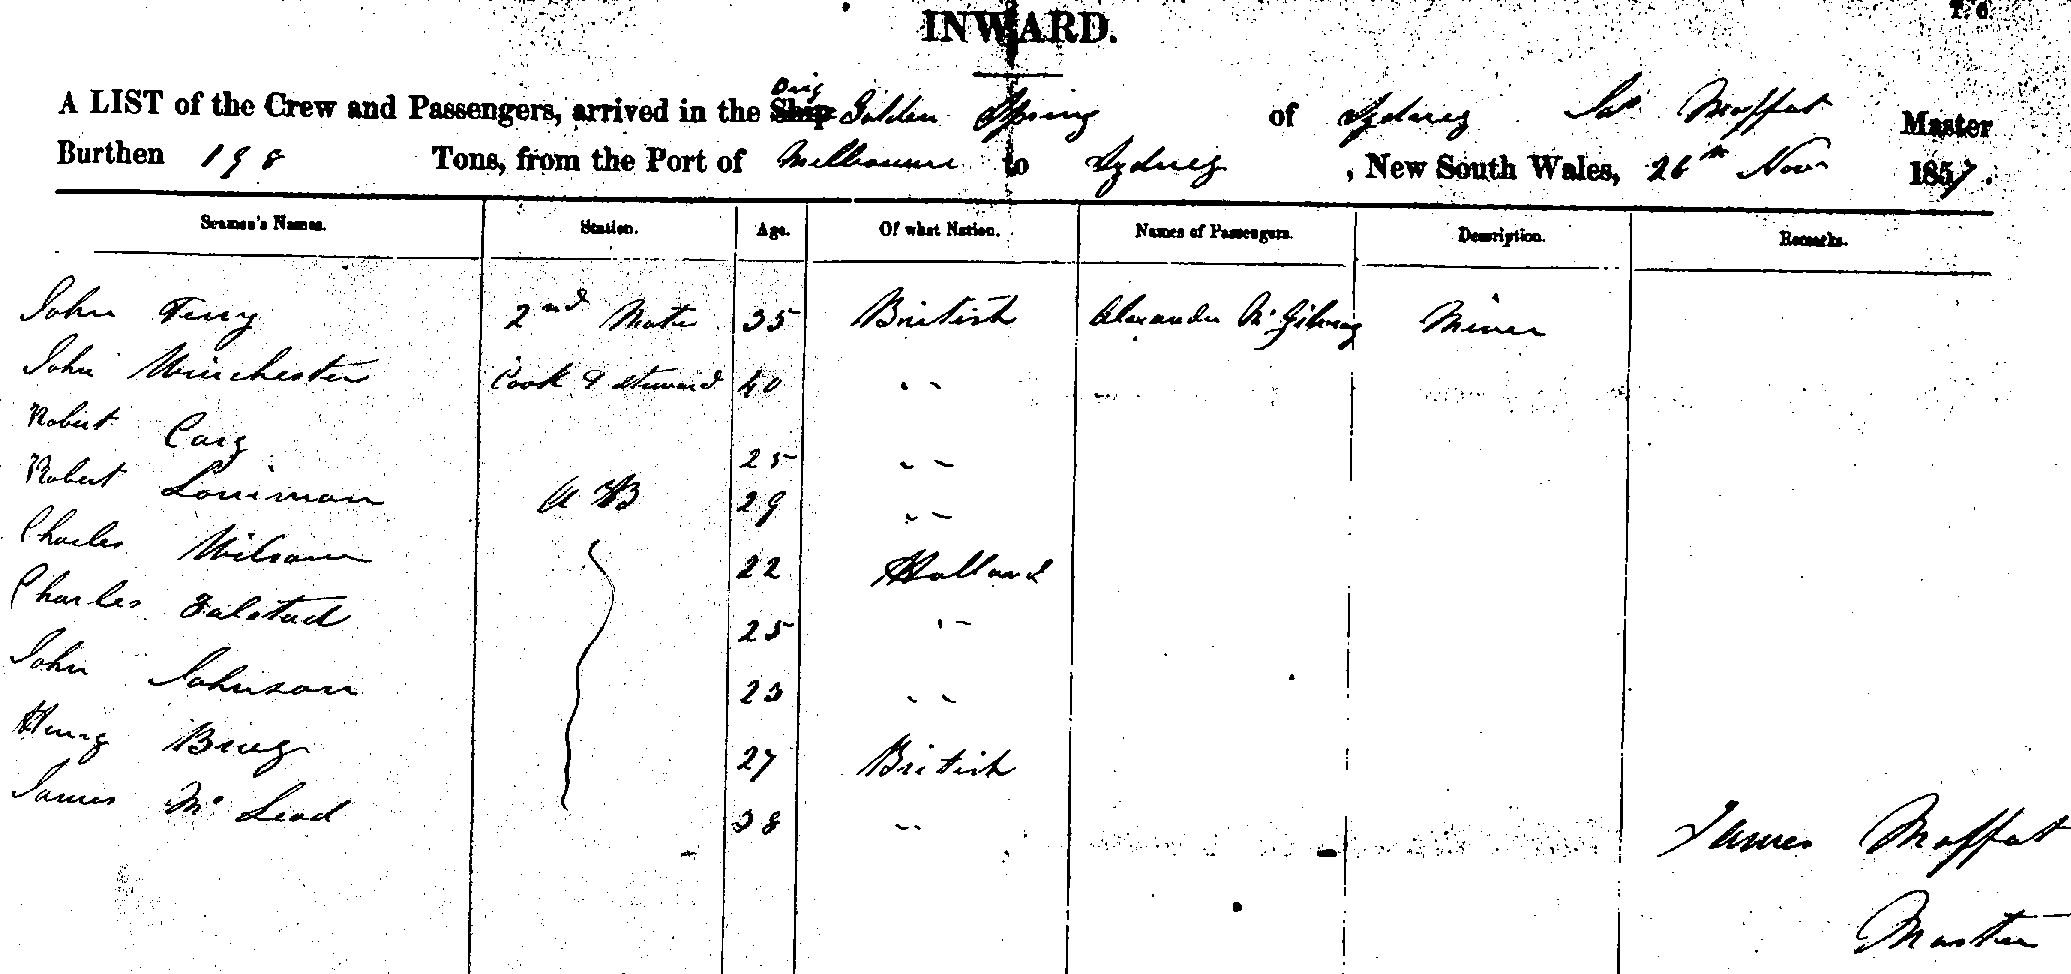 INWARD.
A LIST of the Crew and Passengers, arrived in the Ship Brig Golden Spring of Sydney Jas Moffat Master
Burthen 198 Tons, from the Port of Melbourne to Sydney, New South Wales, 26th Novr 1857.
Seamen's Names. Station. Age. Of what Nation. Names of Passengers. Description. Remarks.
John Terry 2nd Mate 35 British Alexander McGilvray Miner
John Winchester Cook & Steward 40 " "
Robert Carg 25 " "
Robert Lorriman A B 29 " "
Charles Wilson 22 Holland
Charles Falstad 25 " "
John Johnson 23 " "
Henry 27 British
James McLeod 38 " "
James Moffat
Master